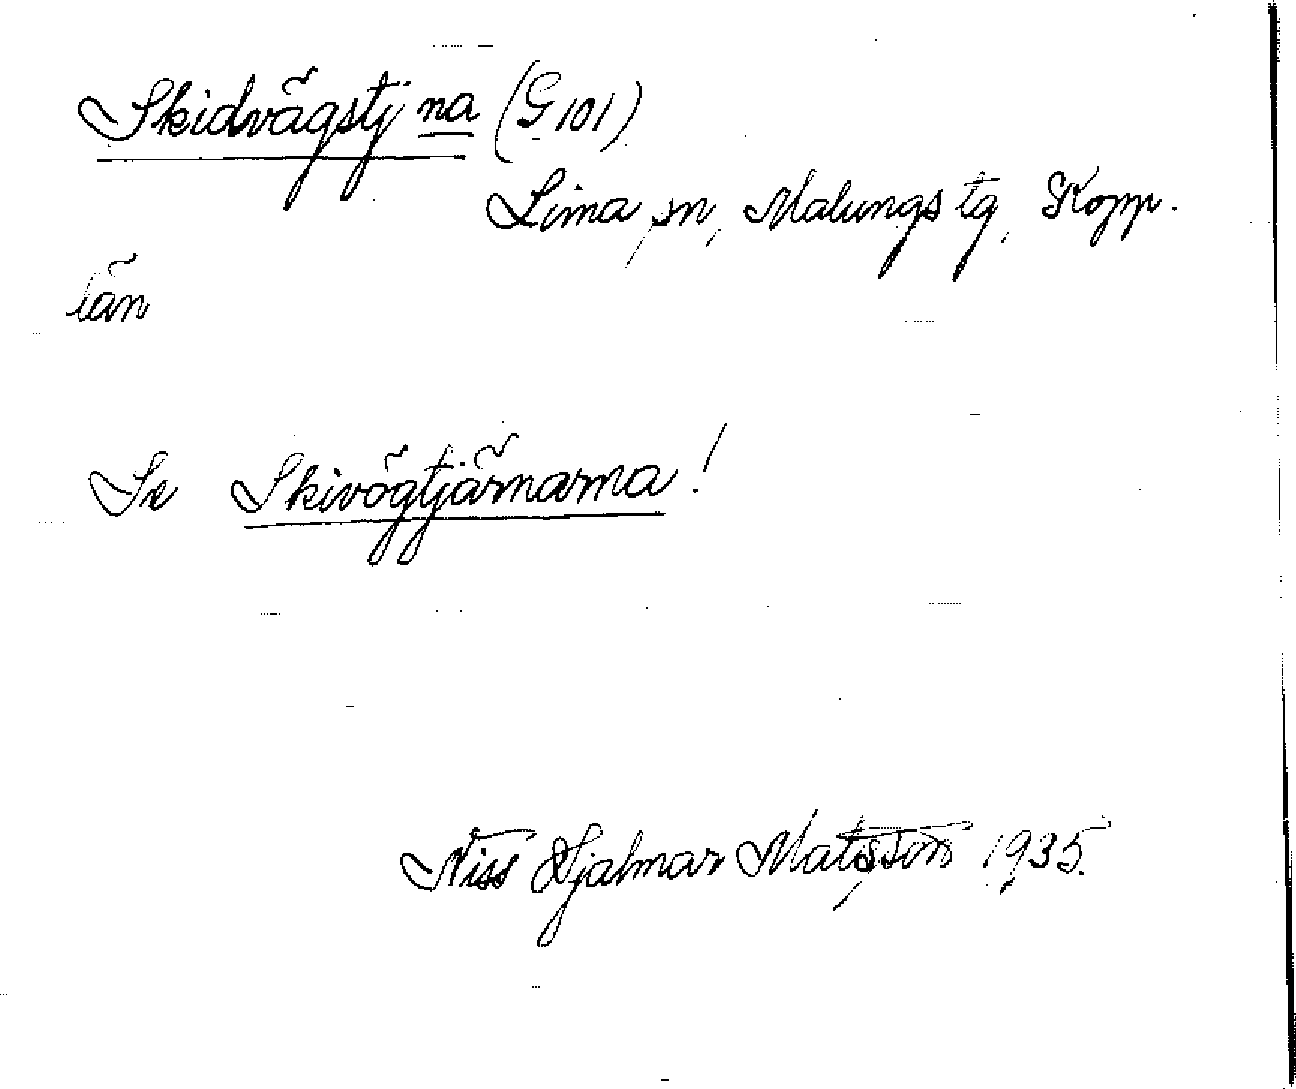 Skidvägstj na (G 101)
Lima sn, Malungs tg, Kopp.
län
Se Skivögtjärnarna!
Niss Hjalmar Matsson 1935.